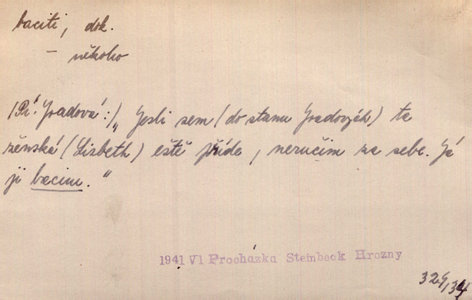 baciti, dok.
– někoho
(Pí Joadová:) „Jesli sem (do stanu Joadových) ta
ženská (Lisbeth) eště příde, neručim za sebe. Já
ji bacim."
1941 VI Procházka Steinbeck Hrozny
324,34